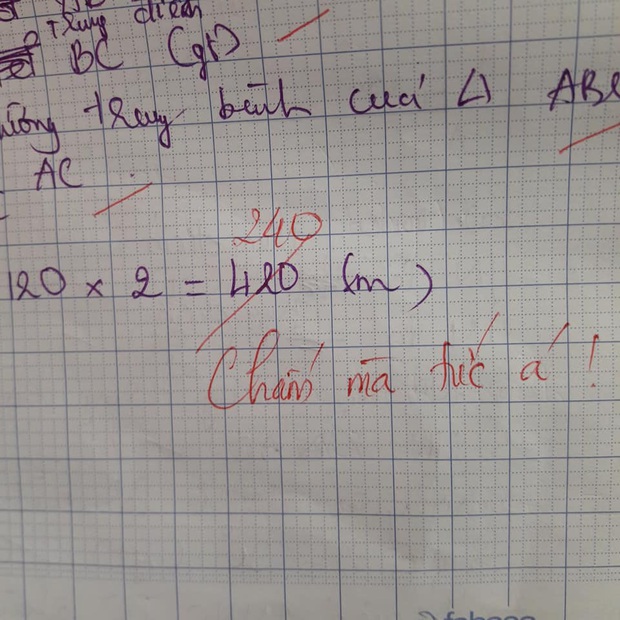 trung điểm
BC (gt)
đường trung bình cuả Δ ABC
AC
240
120 x 2 = 420 (m)
Chấm mà tức á!